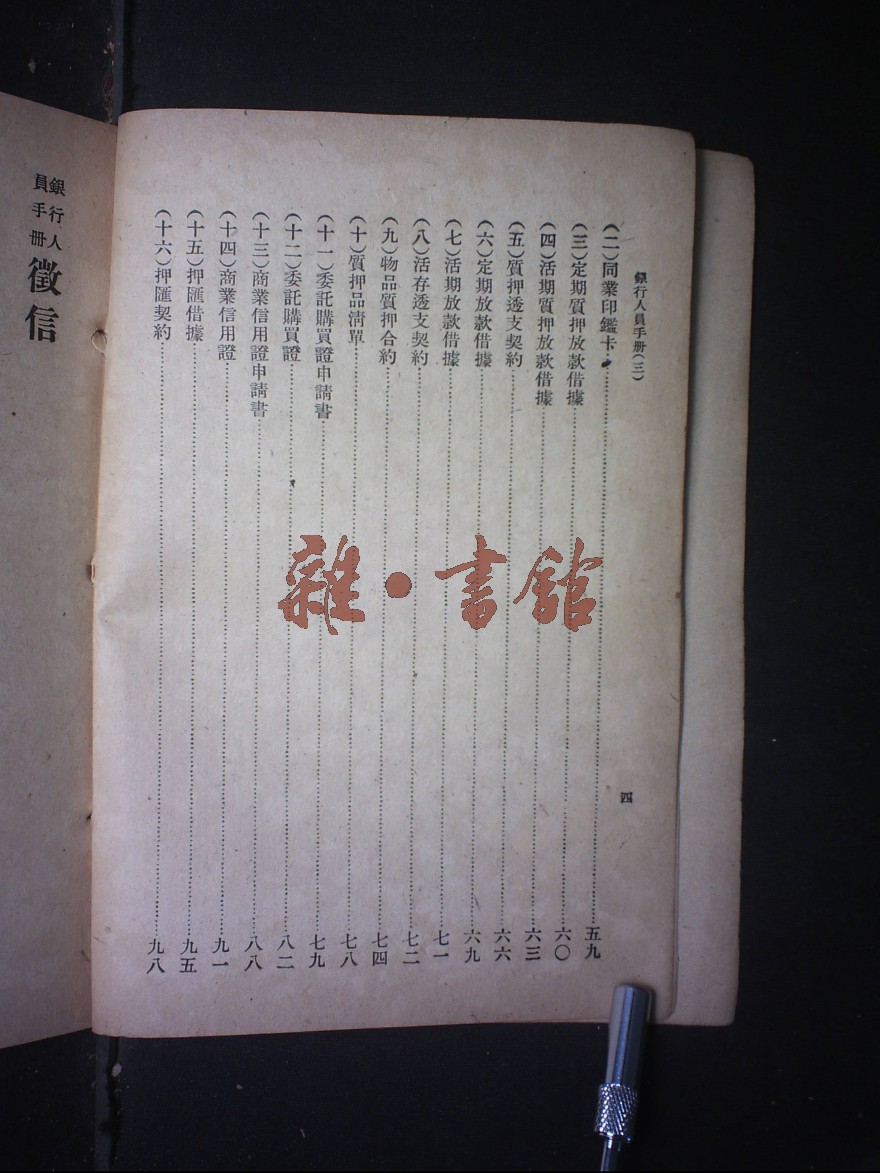 銀行人員手册(三)
四
(二)同業印鑑卡……五九
(三)定期質押放款借據……六〇
(四)活期質押放款借據……六三
(五)質押透支契約……六六
(六)定期放款借據……六九
(七)活期放款借據……七一
(八)活存透支契約……七二
(九)物品質押合約……七四
(十)質押品清單……七八
(十一)委託購買證申請書……七九
(十二)委託購買證……八二
(十三)商業信用證申請書……八八
(十四)商業信用證……九一
(十五)押匯借據……九五
(十六)押匯契約……九八
銀行人員手册
徵信
雜·書館